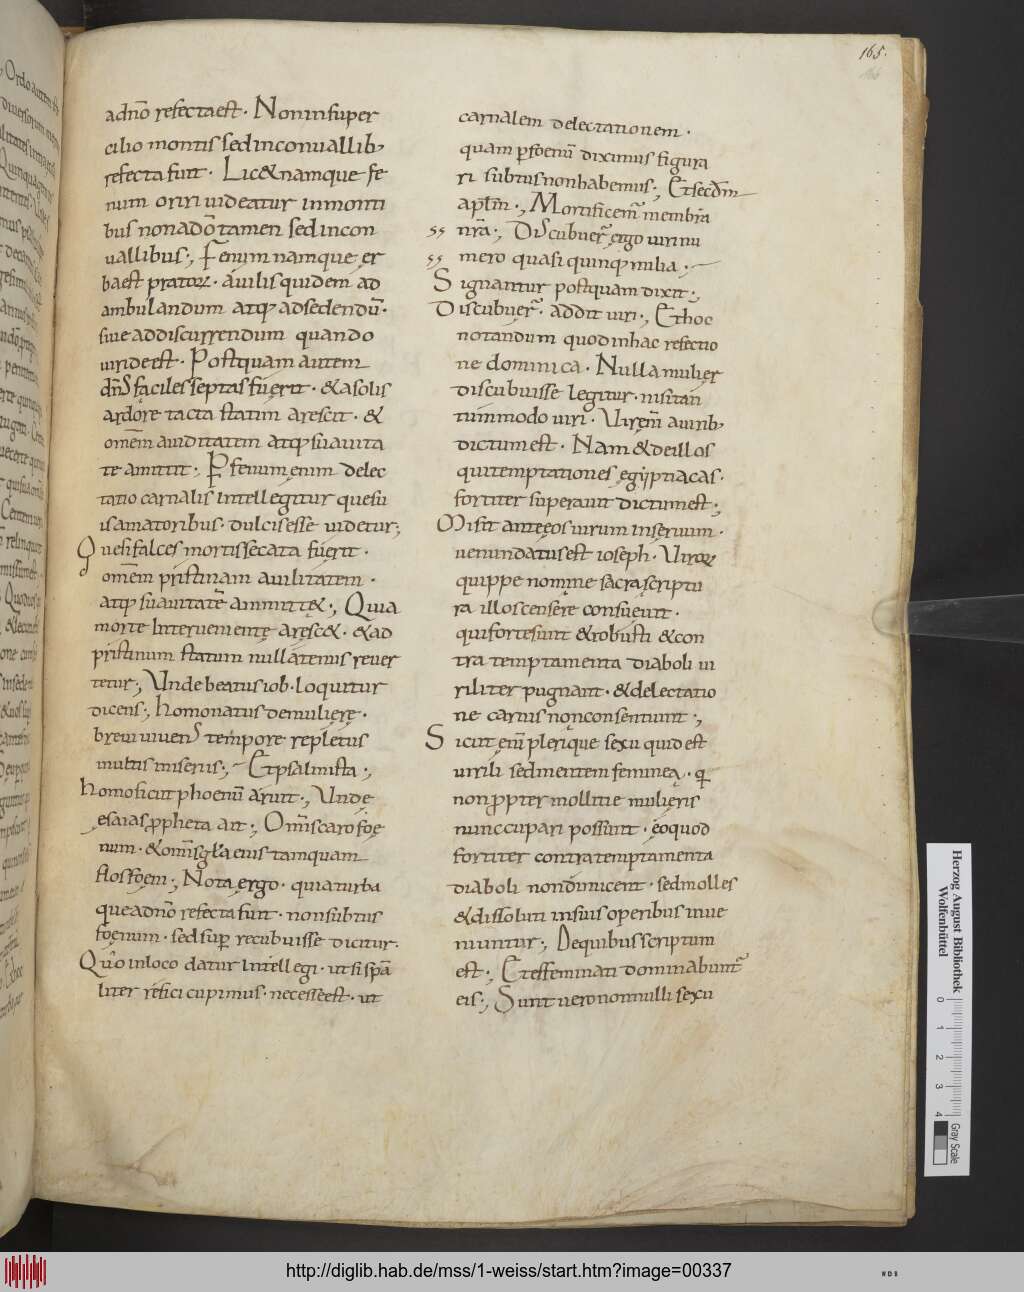 165.
166
adnō refectaest. Non insuper
cilio montis sed inconuallib;
refecta sunt. Lic& namque fe
num oriri uideatur inmonti
bus non adō tamen sed incon
uallibus., Fenum namque er
ba est pratoꝝ. áuilis quidem ad
ambulandum atq; adsedendū.
siue ad discurrendum quando
uiride est. Postquam autem
dn̄s faciles septas fúerit. & a solis
ardore tacta statim arescit. &
omēm auiditatem atq; suauita
te amittit., P fenum enim delec
tatio carnalis intellegitur que su
is amatoribus. dulcis esse uidetur;
Que si falces mortis secata fúerit.
omēm pristinam auilitatem.
atq; suauitatē ammittet., Quia
morte interueniente aresc&. & ad
pristinum statum nullatenus reuer
tetur., Unde beatus iob. loquitur
dicens., homo natus de muliere.
breui uiuens tempore repletus
multis miseriis., Et psalmista.,
homo sicut phoenū áruit., Unde
esaias ꝓpheta ait., Om̄is caro foe
num. & om̄is gła eius tamquam
flos foeni., Nota ergo. quia turba
que adnō refecta sunt. non subtus
foenum. sed suꝑ recubuisse dicitur.
Quo in loco datur intellegi. ut si spā
liter refici cupimus. necesse est. ut
carnalem delectationem.
quam ꝑ foenū diximus figura
ri subtus non habemus., Et secdm̄
aplm̄., Mortificem̄ membra
nr̄a., Discubuer̄ ergo uiri nu
mero quasi quinq; milia.
Signantur postquam dixit.,
Discubuer̄. addit uiri., Et hoc
notandum quod in hac refectio
ne dominica. Nulla mulier
discubuisse legitur. nisi tan
tummodo uiri. Uirem̄ auirib;
dictum est. Nam & de illos
qui temptationes egiptiacas.
fortiter superauit dictum est.,
Misit ante eos uirum in seruum.
uenundatus est ioseph. Uiroꝝ
quippe nomine sacra scriptu
ra illos censere consueuit.
qui forte sunt & robusti & con
tra temptamenta diaboli ui
riliter pugnant. & delectatio
ne carnis non consentiunt.,
Sicut em̄ plerique sexu quid est
uirili sed mentem feminea. q
non ꝓpter mollitie mulieris
nunccupari possunt. eo quod
fortiter contra temptamenta
diaboli non dimicent. sed molles
& dissoluti in suis operibus inue
niuntur., De quibus scriptum
est., Et effeminati dominabunt̄
eis., Sunt uero nonnulli sexu
Herzog August Bibliothek
Wolfenbüttel
0 1 2 3 4
Gray Scale
http://diglib.hab.de/mss/1-weiss/start.htm?image=00337